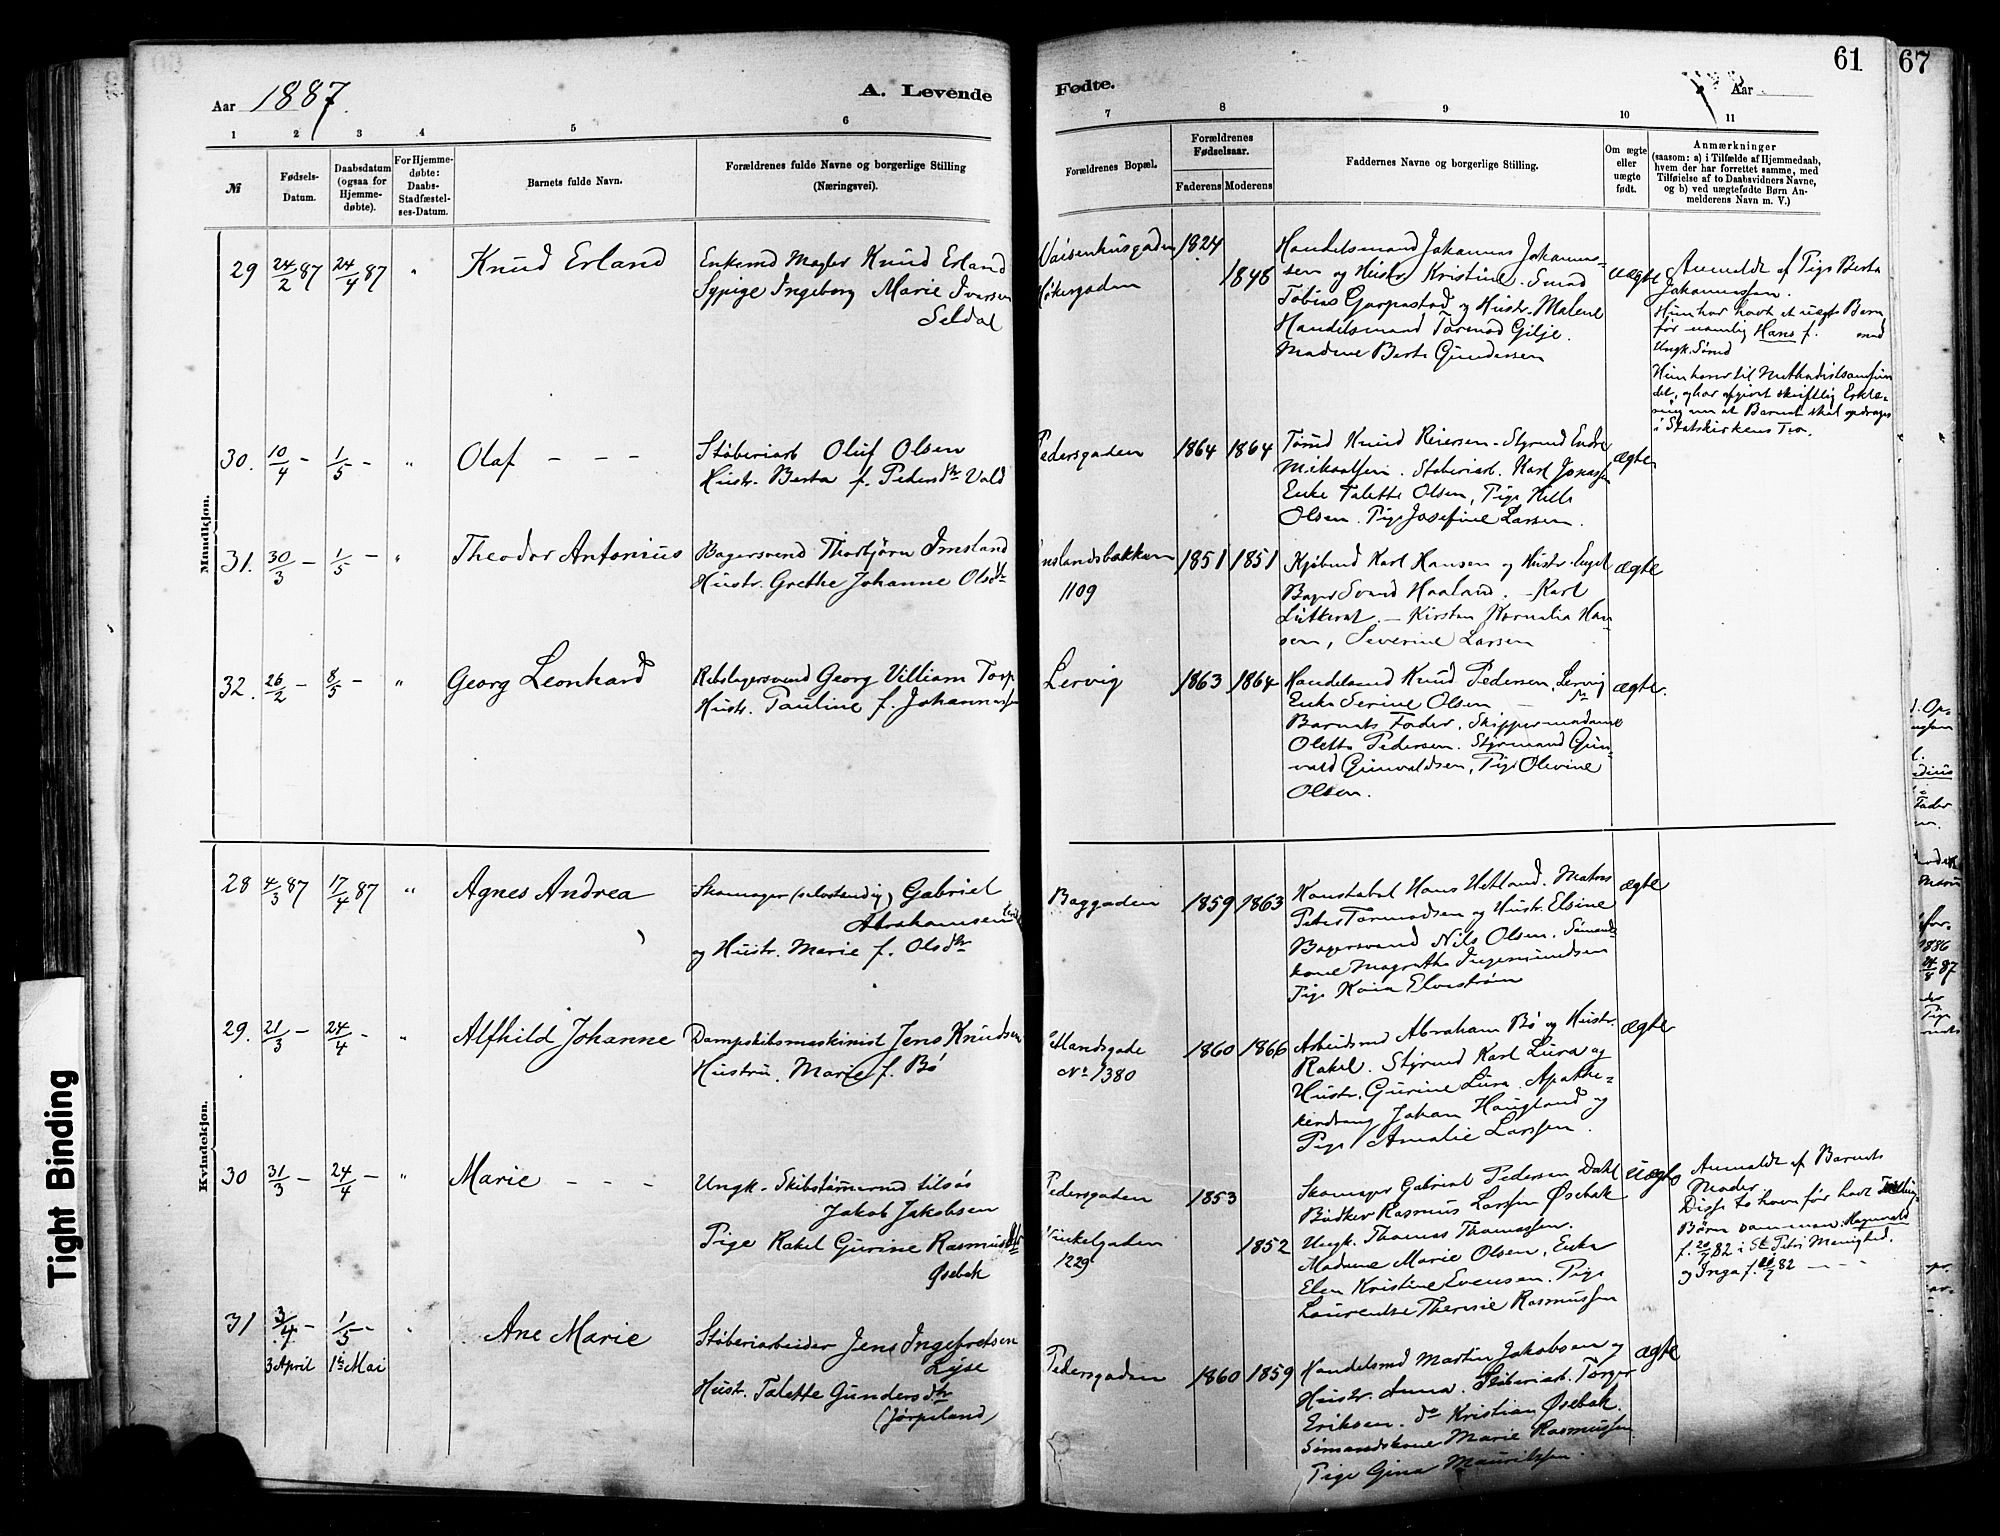 61
67
Aar 1887.
A. Levende
Fødte.
Aar
1 2 3 4 5 6
7 8 9 10 11
№
Fødsels-
Datum.
Daabsdatum
(ogsaa for
Hjemme-
døbte).
For Hjemme-
døbte:
Daabs-
Stadfæstel-
ses-Datum.
Barnets fulde Navn.
Forældrenes fulde Navne og borgerlige Stilling
(Næringsvei).
Forældrenes Bopæl.
Forældrenes
Fødselsaar.
Faderens
Moderens
Faddernes Navne og borgerlige Stilling.
Om ægte
eller
uægte
født.
Anmærkninger
(saasom: a) i Tilfælde af Hjemmedaab,
hvem der har forrettet samme, med
Tilføielse af to Daabsvidners Navne,
og b) ved uægtefødte Børn An-
melderens Navn m. V.)
Mandkjøn.
29 24/2 87 24/4 87 " Knud Erland
Enkemd Mægler Knud Erland
Sypige Ingeborg Marie Iversen
Seldal
Vaisenhusgaden 1824
Høkergaden 1848
Handelsmand Johannes Johannes-
sen og Hustr. Kristine. Smed
Tobias Garpestad og Hustr. Malene
Handelsmand Tormod Gilje.
Madme Berte Gundersen
uægte
Anmeldt af Pige Berta
Johannessen.
Hun har havt et uægte Barn
før nemlig Hans f. med
Ungk. Sømd
Hun hører til Methodistsamfun
det, og har afgivet skriftlig Erklæ-
ring om at Barnet skal opdrages
i Statskirkens Tro.
30. 10/4 - 1/5 - " Olaf - - -
Støberiarb Oluf Olsen
Hustr. Berta f. Pedersdtr Vold
Pedersgaden 1864 1864
Tømd Knud Reiersen - Styrmd Endre
Mikaelsen. Støberiarb. Karl Jonassen
Enke Talette Olsen, Pige Hille
Olsen. Pige Josefine Larsen.
ægte
31. 30/3 - 1/5 - " Theodor Antonius
Bagersvend Thorbjørn Imsland
Hustr. Grethe Johanne Olsdtr
nslandsbakken 1851 1851
1109
Kjøbmd Karl Hansen og Hustr. Engel
Bager Svend Haaland. - Karl
Lütkerat. - Kirsten Kornelia Han-
sen, Severine Larsen
ægte
32. 26/2 - 8/5 - " Georg Leonhard
Rebslagersvend Georg Villiam Torp
Hustr. Pauline f. Johannessen
Lervig 1863 1864
Handelsmd Knud Pedersen, Lervig
Enke Serine Olsen -
Barnets Fader, Skippermadame
Olette Pedersen. Styrmand Gun-
vald Gunvaldsen, Pige Olevine
Olsen.
ægte.
Kvindekjøn.
28 4/3 87 17/4 87 " Agnes Andrea
Skomager (selvstendig) Gabriel
Abrahamsen
og Hustr. Marie f. Olsdtr
Baggaden 1859 1863
Konstabel Hans Hetland. Matros
Peter Tormodsen og Hustr. Elsine
Bagersvend Nils Olsen. Sømands-
kone Magrethe Ingemundsen
Pige Kaia Elvestrøm
ægte
29. 21/3 - 24/4 - " Alfhild Johanne
Dampskibsmaskinist Jens Knudsen
Hustru, Marie f. Bö
etlandsgade 1860 1866
No 1380
Arbeidsmd Abraham Bö og Hustr.
Rakel. Styrmd Karl Lura og
Hustr. Gurine Lura. Apothe-
kerdreng Johan Haugland og
Pige Amalie Larssen.
ægte
30 31/3 - 24/4 - " Marie - - -
Ungk. Skibstømmermd tilsøs
Jakob Jakobsen
Pige Rakel Gurine Rasmusdtr
Øsebak
Pedersgaden 1853
Vinkelgaden 1852
1229
Skomager Gabriel Pedersen Dahl
Bødker Rasmus Larssen Øsebak
Ungk. Thomas Thomassen.
Madme Marie Olsen, Enke
Elen Kristine Evensen. Pige
Laurentse Theresie Rasmussen
Uægte
Anmeldt af Barnets
Moder.
Disse to have før havt
Børn sammen: Ragnvald
f. 82 i St. Petri Menighed.
og Inga f. 82 - - -
31 3/4 - 1/5 - " Ane Marie
3 April 1ste Mai
Støberiarbeider Jens Ingebretsen
Lyse
Hustr. Talette Gundersdtr
(Jørpeland)
Pedersgaden 1860 1859
Handelsmd Martin Jakobsen og
Hustr. Anna. Støberiarb. Torger
Eriksen. do Kristian Øsebak.
Sømandskone Marie Rasmussen
Pige Gina Mauritzsen.
ægte
Tight Binding